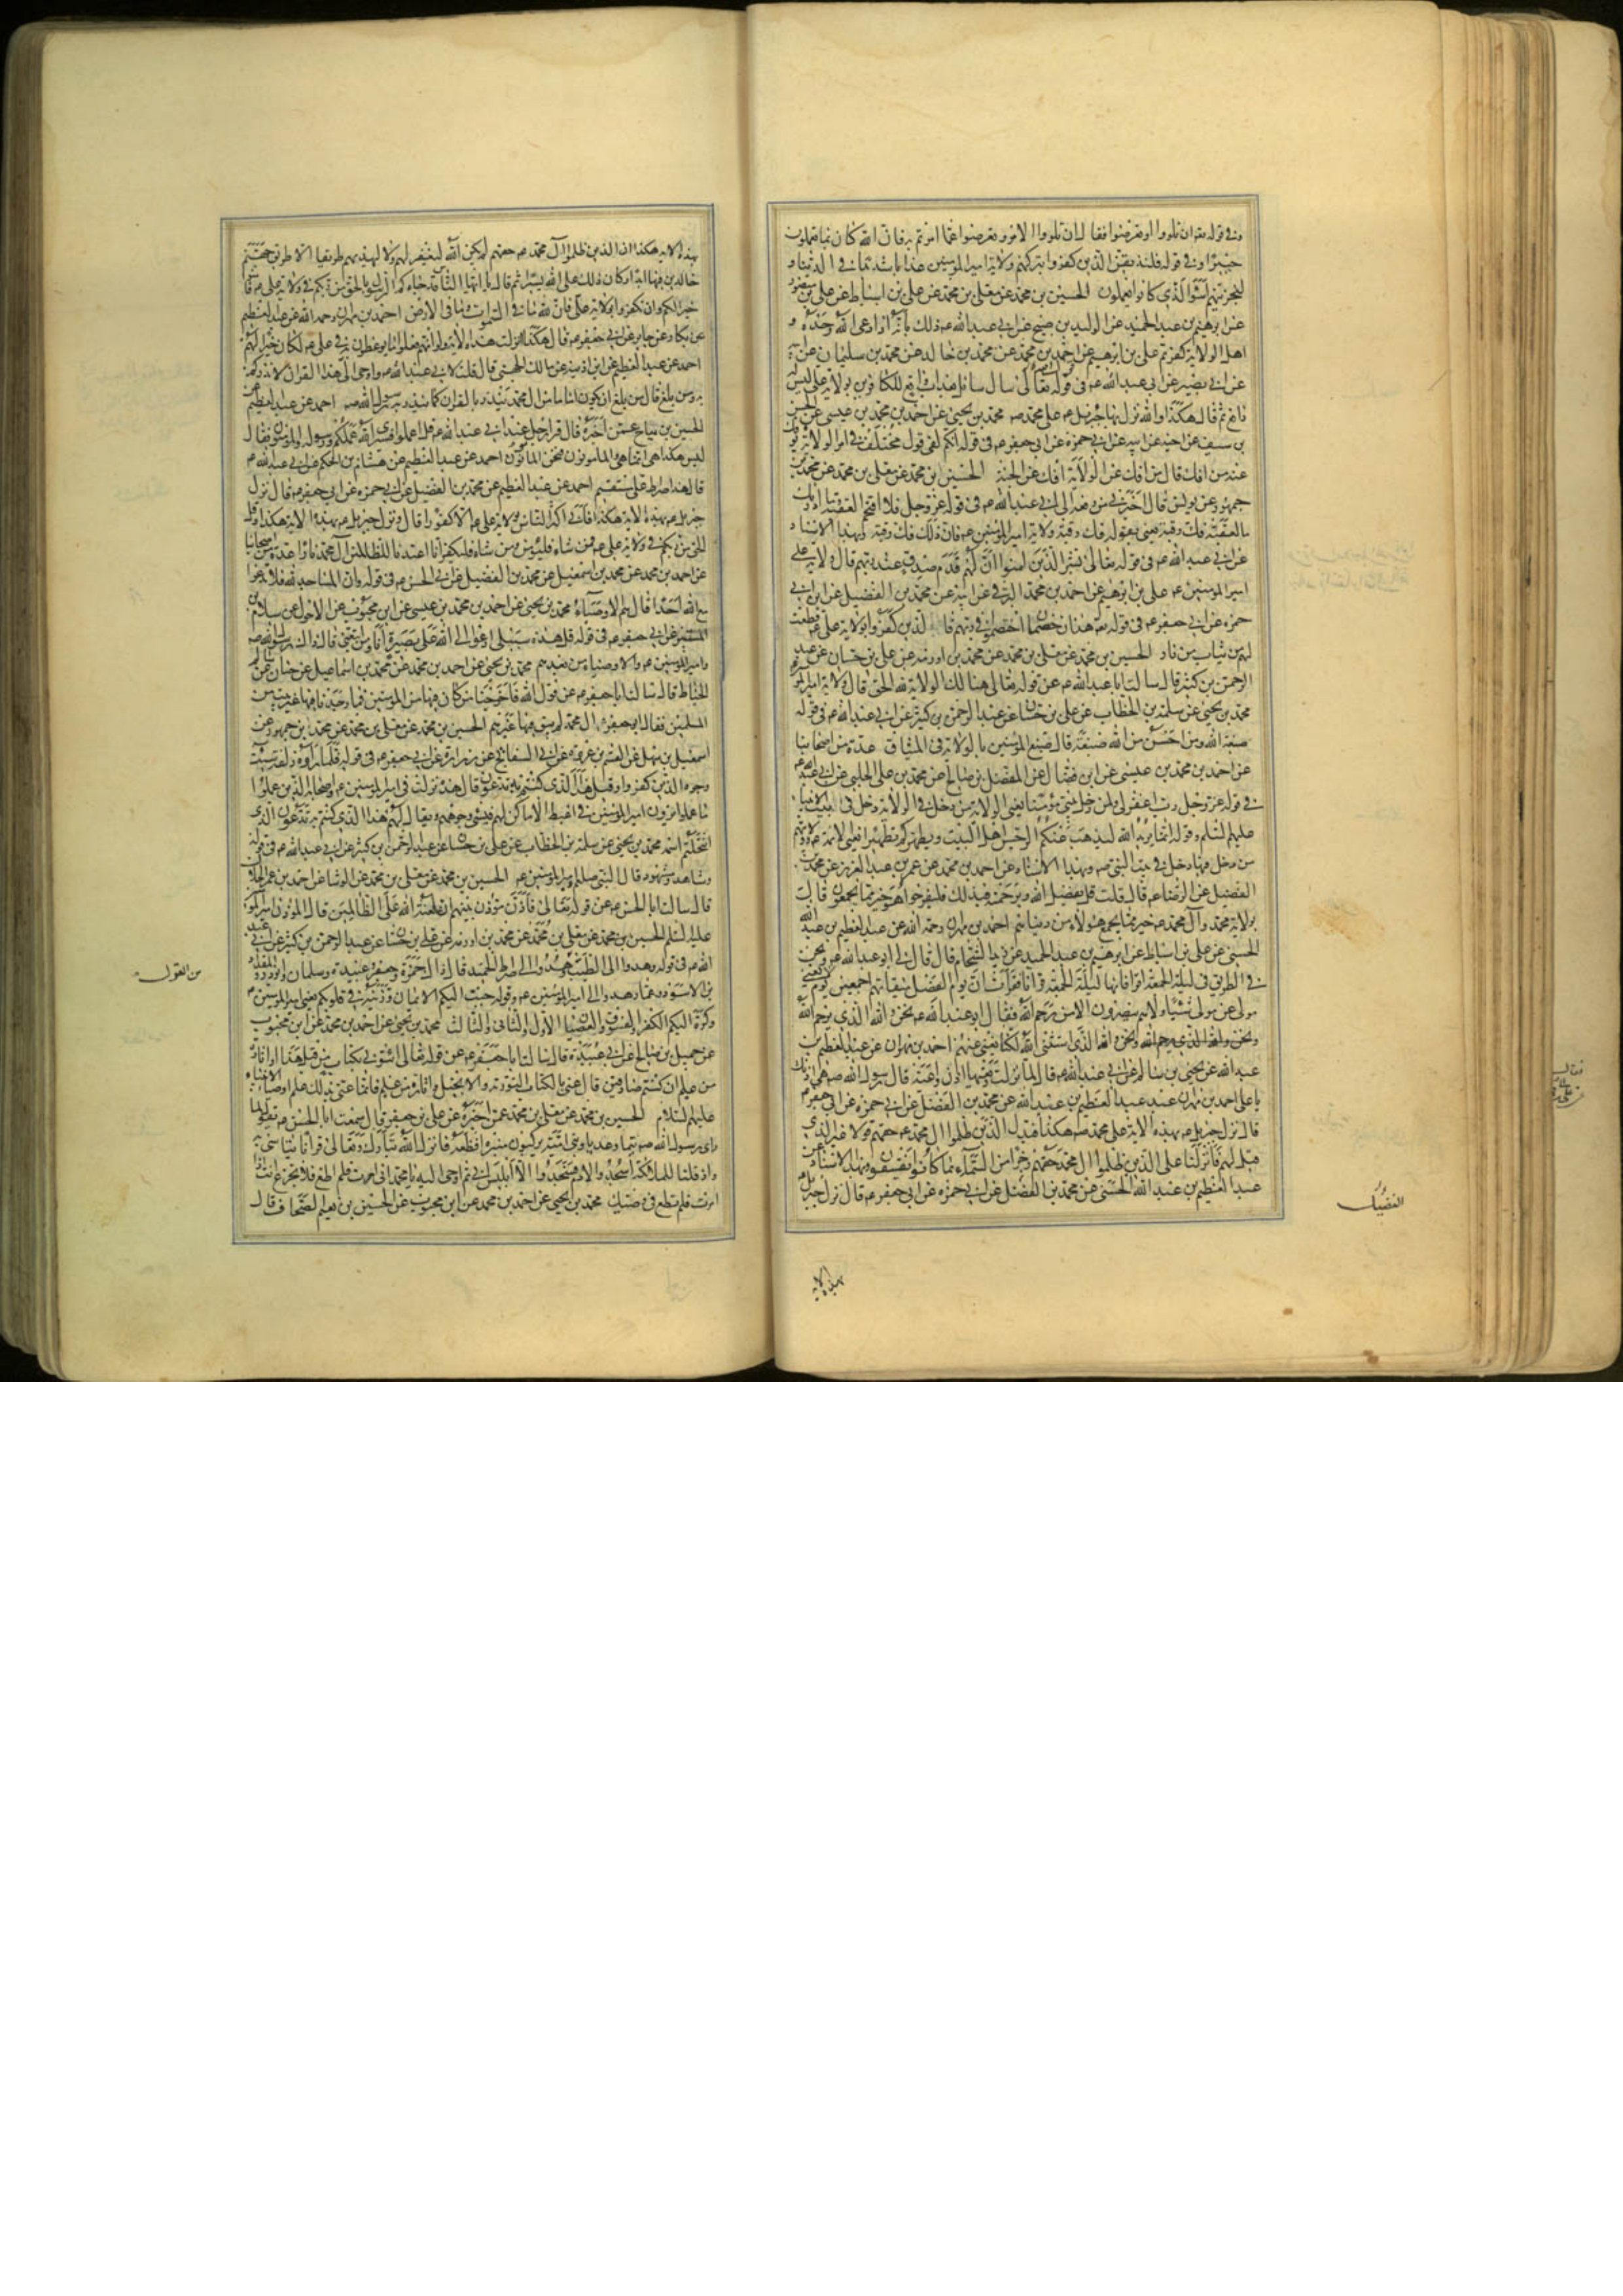 وفى قوله تعالى ان تلووا او تعرضوا فقال ان تلووا الامر وتعرضوا عما امرتم به فان الله كان بما تعملون
خبيرا وفى قوله فلنذيقن الذين كفروا بتركهم ولاية امير المؤمنين عذابا شديدا فى الدنيا و
لنجزينهم اسوأ الذى كانوا يعملون الحسين بن محمد عن معلى بن محمد عن على بن اسباط عن على بن منصور
عن ابرهيم بن عبد الحميد عن الوليد بن صبيح عن ابى عبد الله ع ذلك بانه اذا دعى الله وحده و
اهل الولاية كفرتم على بن ابرهيم عن احمد بن محمد عن محمد بن خالد عن محمد بن سليمان عن ابيه
عن ابى بصير عن ابى عبد الله ع فى قوله تعالى سأل سائل بعذاب واقع للكافرين بولاية على ليس له
دافع ثم قال هكذا والله نزل بها جبرئيل ع على محمد ص محمد بن يحيى عن احمد بن محمد بن عيسى عن الحسن
بن سيف عن اخيه عن ابيه عن ابى حمزة عن ابى جعفر ع فى قوله انكم لفى قول مختلف فى امر الولاية يؤفك
عنه من افك قال من افك عن الولاية افك عن الجنة الحسين بن محمد عن معلى بن محمد عن محمد بن
جمهور عن يونس قال اخبرنى من رفعه الى ابى عبد الله ع فى قوله عز وجل فلا اقتحم العقبة وما ادريك
ما العقبة فك رقبة يعنى بقوله فك رقبة ولاية امير المؤمنين ع فان ذلك فك رقبة وبهذا الاسناد
عن ابى عبد الله ع فى قوله تعالى بشر الذين امنوا ان لهم قدم صدق عند ربهم قال ولاية
امير المؤمنين ع على بن ابرهيم عن احمد بن محمد البرقى عن ابيه عن محمد بن الفضيل عن ابى
حمزة عن ابى جعفر ع فى قوله هذان خصمان اختصموا فى ربهم فالذين كفروا بولاية على ع قطعت
لهم ثياب من نار الحسين بن محمد عن معلى بن محمد عن محمد بن اورمة عن على بن حسان عن عبد
الرحمن بن كثير قال سالت ابا عبد الله ع عن قوله تعالى هنالك الولاية لله الحق قال ولاية امير المؤمنين
محمد بن يحيى عن سلمة بن الخطاب عن على بن حسان عن عبد الرحمن بن كثير عن ابى عبد الله ع فى قوله
صبغة الله ومن احسن من الله صبغة قال صبغ المؤمنين بالولاية فى الميثاق عدة من اصحابنا
عن احمد بن محمد بن عيسى عن ابن فضال عن المفضل بن صالح عن محمد بن على الحلبى عن ابى عبد الله ع
فى قوله عز وجل رب اغفر لى ولمن دخل بيتى مؤمنا يعنى الولاية من دخل فى الولاية دخل فى بيت الانبياء
عليهم السلم وقوله انما يريد الله ليذهب عنكم الرجس اهل البيت ويطهركم تطهيرا يعنى الائمة ع وولايتهم
من دخل فيها دخل فى بيت النبى ص وبهذا الاسناد عن احمد بن محمد عن عمر بن عبد العزيز عن محمد بن
الفضيل عن الرضا ع قال قلت قل بفضل الله وبرحمته فبذلك فليفرحوا هو خير مما يجمعون قال
بولاية محمد وآل محمد ع خير مما يجمع هؤلاء من دنياهم احمد بن مهران رحمه الله عن عبد العظيم بن عبد الله
الحسنى عن على بن اسباط عن ابرهيم بن عبد الحميد عن زيد الشحام قال قال لى ابو عبد الله ع ونحن
فى الطريق فى ليلة الجمعة اقرأ فانها ليلة الجمعة قرآنا فقرأت ان يوم الفصل ميقاتهم اجمعين يوم لا يغنى
مولى عن مولى شيئا ولا هم ينصرون الا من رحم الله فقال ابو عبد الله ع نحن والله الذى يرحم الله
ونحن والله الذى يرحم الله ونحن والله الذى استثنى الله لكنا نغنى عنهم احمد بن مهران عن عبد العظيم بن
عبد الله عن يحيى بن سالم عن ابى عبد الله ع قال لما نزلت وتعيها اذن واعية قال رسول الله ص هى اذنك
يا على احمد بن مهران عن عبد العظيم بن عبد الله عن محمد بن الفضيل عن ابى حمزة عن ابى جعفر ع
قال نزل جبرئيل ع بهذه الاية على محمد ص هكذا فبدل الذين ظلموا ال محمد ع حقهم قولا غير الذى
قيل لهم فانزلنا على الذين ظلموا ال محمد حقهم رجزا من السماء بما كانوا يفسقون وبهذا الاسناد عن
عبد العظيم بن عبد الله الحسنى عن محمد بن الفضيل عن ابى حمزة عن ابى جعفر ع قال نزل جبرئيل
بهذه الاية
الفضيل
بهذه الاية هكذا ان الذين ظلموا آل محمد ع حقهم لم يكن الله ليغفر لهم ولا ليهديهم طريقا الا طريق جهنم
خالدين فيها ابدا وكان ذلك على الله يسيرا ثم قال يا ايها الناس قد جاءكم الرسول بالحق من ربكم فى ولاية على ع فامنوا
خيرا لكم وان تكفروا بولاية على فان لله ما فى السموات وما فى الارض احمد بن مهران رحمه الله عن عبد العظيم
عن بكار عن جابر عن ابى جعفر ع قال هكذا نزلت هذه الاية ولو انهم فعلوا ما يوعظون به فى على ع لكان خيرا لهم
احمد عن عبد العظيم عن ابن اذينة عن مالك الجهنى قال قلت لابى عبد الله ع واوحى الى هذا القرآن لانذركم
به ومن بلغ قال من بلغ ان يكون اماما من ال محمد ينذر بالقرآن كما ينذر به رسول الله ص احمد عن عبد العظيم عن
الحسين بن مياح عمن اخبره قال قرأ رجل عند ابى عبد الله ع قل اعملوا فسيرى الله عملكم ورسوله والمؤمنون فقال
ليس هكذا هى انما هى والمأمونون فنحن المأمونون احمد عن عبد العظيم عن هشام بن الحكم عن ابى عبد الله ع
قال هذا صراط على مستقيم احمد عن عبد العظيم عن محمد بن الفضيل عن ابى حمزة عن ابى جعفر ع قال نزل
جبرئيل ع بهذه الاية هكذا فابى اكثر الناس بولاية على ع الا كفورا قال ونزل جبرئيل ع بهذه الاية هكذا وقل
الحق من ربكم فى ولاية على ع فمن شاء فليؤمن ومن شاء فليكفر انا اعتدنا للظالمين آل محمد نارا عدة من اصحابنا
عن احمد بن محمد عن محمد بن اسمعيل عن محمد بن الفضيل عن ابى الحسن ع فى قوله وان المساجد لله فلا تدعوا
مع الله احدا قال هم الاوصياء محمد بن يحيى عن احمد بن محمد بن عيسى عن ابن محبوب عن الاحول عن سلام بن
المستنير عن ابى جعفر ع فى قوله قل هذه سبيلى ادعوا الى الله على بصيرة انا ومن اتبعنى قال ذاك رسول الله ص
وامير المؤمنين ع والاوصياء من بعدهم محمد بن يحيى عن احمد بن محمد عن محمد بن اسماعيل عن حنان عن سالم
الحناط قال سالت ابا جعفر ع عن قول الله فاخرجنا من كان فيها من المؤمنين فما وجدنا فيها غير بيت من
المسلمين فقال ابو جعفر ع ال محمد لم يبق فيها غيرهم الحسين بن محمد عن معلى بن محمد عن محمد بن جمهور عن
اسمعيل بن سهل عن القسم بن عروة عن ابى السفاتج عن زرارة عن ابى جعفر ع فى قوله فلما رأوه زلفة سيئت
وجوه الذين كفروا وقيل هذا الذى كنتم به تدعون قال هذه نزلت فى امير المؤمنين ع واصحابه الذين عملوا
ما عملوا يرون امير المؤمنين فى اغبط الاماكن لهم فيسيئ وجوههم ويقال لهم هذا الذى كنتم به تدعون الذى
انتحلتم اسمه محمد بن يحيى عن سلمة بن الخطاب عن على بن حسان عن عبد الرحمن بن كثير عن ابى عبد الله ع فى قوله
وشاهد ومشهود قال النبى صلعم وامير المؤمنين ع الحسين بن محمد عن معلى بن محمد عن الوشا عن احمد بن عمر الحلال
قال سالت ابا الحسن ع عن قوله تعالى فاذن مؤذن بينهم ان لعنة الله على الظالمين قال المؤذن امير المؤمنين
عليه السلم الحسين بن محمد عن معلى بن محمد عن محمد بن اورمة عن على بن حسان عن عبد الرحمن بن كثير عن ابى عبد
الله ع فى قوله وهدوا الى الطيب من القول وهدوا الى صراط الحميد قال ذاك حمزة وجعفر وعبيدة وسلمان وابوذر والمقداد
بن الاسود وعمار هدوا الى امير المؤمنين ع وقوله حبب اليكم الايمان وزينه فى قلوبكم يعنى امير المؤمنين ع
وكره اليكم الكفر والفسوق والعصيان الاول والثانى والثالث محمد بن يحيى عن احمد بن محمد عن ابن محبوب
عن جميل بن صالح عن ابى عبيدة قال سالت ابا جعفر ع عن قوله تعالى ائتونى بكتاب من قبل هذا او اثارة
من علم ان كنتم صادقين قال عنى بالكتاب التورية والانجيل واثارة من علم فانما عنى بذلك علم اوصياء الانبياء
عليهم السلام الحسين بن محمد عن معلى بن محمد عمن اخبره عن على بن جعفر قال سمعت ابا الحسن ع يقول لما
رأى رسول الله ص تيما وعديا وبنى امية يركبون منبره افظعه فانزل الله تبارك وتعالى قرآنا يتأسى به
واذ قلنا للملائكة اسجدوا لادم فسجدوا الا ابليس ابى ثم اوحى اليه يا محمد انى امرت فلم اطع فلا تجزع انت اذا
امرت فلم تطع فى وصيك محمد بن يحيى عن احمد بن محمد عن ابن محبوب عن الحسين بن نعيم الصحاف قال
من القول